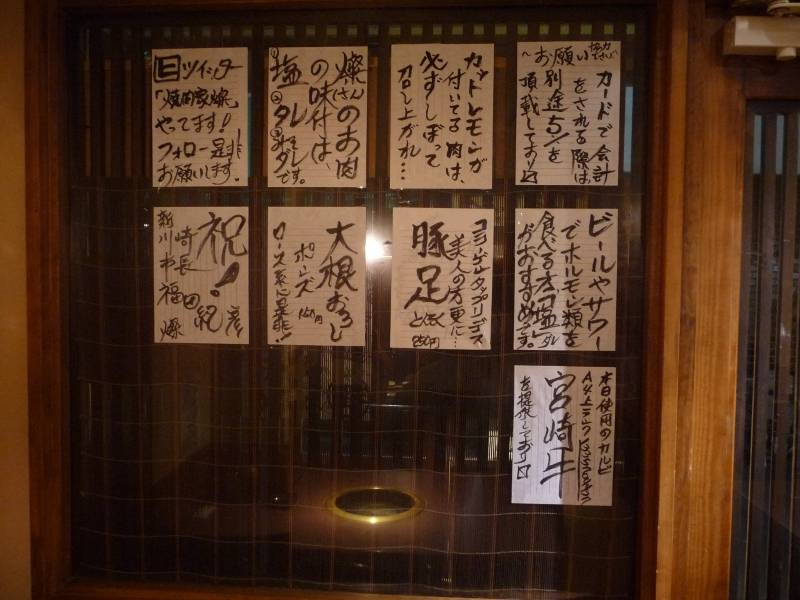 〜お願い〜
カードで会計
をされる際は、
別途5%を
頂戴しており〼
カットレモンが
付いてる肉は、
必ずしぼって
召し上がれ…
燦(さん)のお肉
の味付は、
①塩②タレ③モミダレ
です。
ツイッター
「焼肉家燦」
やってます!
フォロー是非
お願いします。
ビールやサワー
でホルモン類を
食べる方「塩」タレ
がおすすめです。
コラーゲンタップリデス
美人の方更に…
豚足
とんそく
250円
大根おろし
ポンズ
ロース系に是非!
祝!
新川崎市長
福田紀彦
燦
本日使用のカルビ
宮崎牛
を提供しており〼